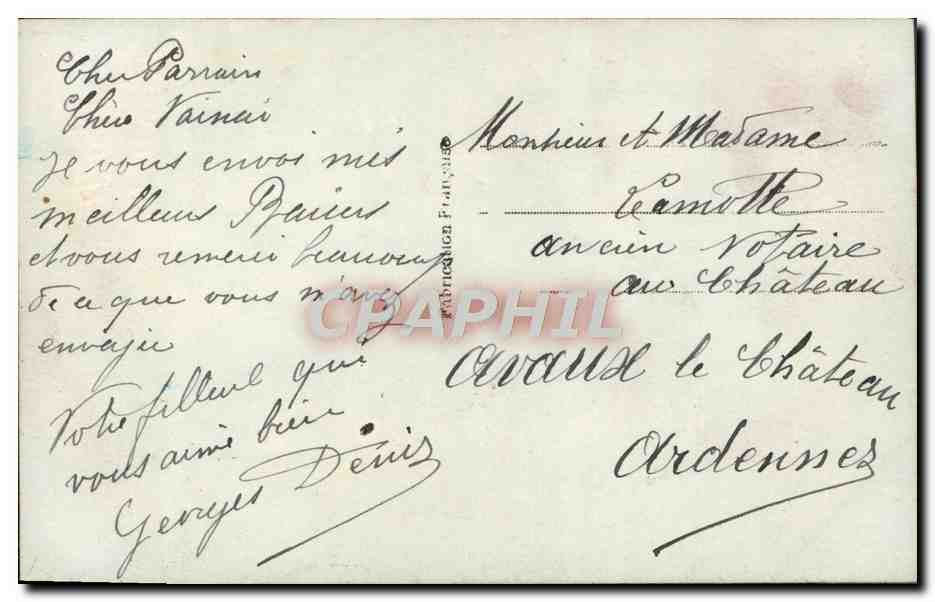 Cher Parrain
Chère
Je vous envoi mes
meilleurs Baisers
et vous remerci beaucoup
de ce que vous m'avez
envoyer
Votre filleul qui
vous aime bien
Georges Denis
Fabrication Française
Monsieur et Madame
Lamotte
ancien Notaire
au Château
Avaux le Château
Ardennes
CPAPHIL